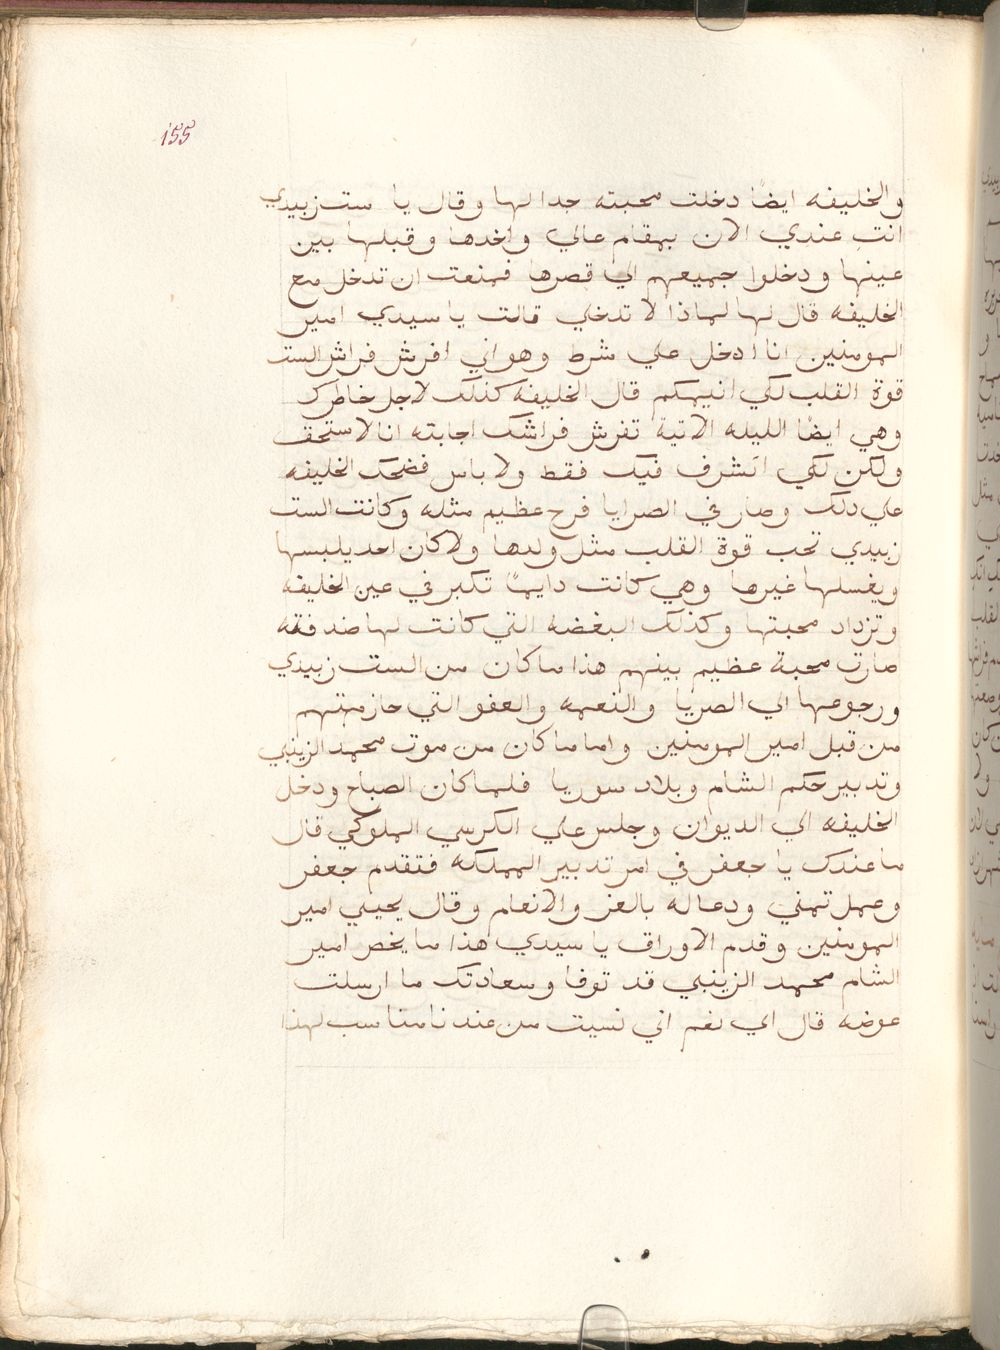 155
والخليفه ايضًا دخلت محبته جدا لها وقال يا ست زبيدي
انت عندي الان بمقام عالي واخدها وقبلها بين
عينها ودخلوا جميعهم الي قصرها فمنعت ان تدخل مع
الخليفه قال لها لماذا لا تدخلي قالت يا سيدي امير
المومنين انا ادخل علي شرط وهو اني افرش فراش الست
قوة القلب لكي انيمكم قال الخليفه كذلك لاجل خاطرك
وهي ايضًا الليله الاتية تفرش فراشك اجابته انا لا ستحق
ولكن لكي اتشرف فيك فقط ولا باس فضحك الخليفه
علي دلك وصار في الصرايا فرح عظيم مثله وكانت الست
زبيدي تحب قوة القلب مثل ولدها ولا كان احد يلبسها
ويغسلها غيرها وهي كانت دايمًا تكبر في عين الخليفه
وتزداد محبتها وكذلك البغضه التي كانت لها ضد فقه
صارت محبة عظيم بينهم هذا ما كان من الست زبيدي
ورجوعها الي الصريا والنعمه والعفو التي حازمتهم
من قبل امير المومنين واما ما كان من موت محمد الزينبي
وتدبير حكم الشام وبلاد سوريا فلما كان الصباح ودخل
الخليفه الي الديوان وجلس علي الكرسي الملوكي قال
ما عندك يا جعفر في امر تدبير المملكه فتقدم جعفر
وعمل تمني ودعا له بالعز والانعام وقال يحيي امير
المومنين وقدم الاوراق يا سيدي هذا ما يخص امير
الشام محمد الزينبي قد توفا وسعادتك ما ارسلت
عوضه قال اي نعم اني نسيت من عندنا مناسب لهذا